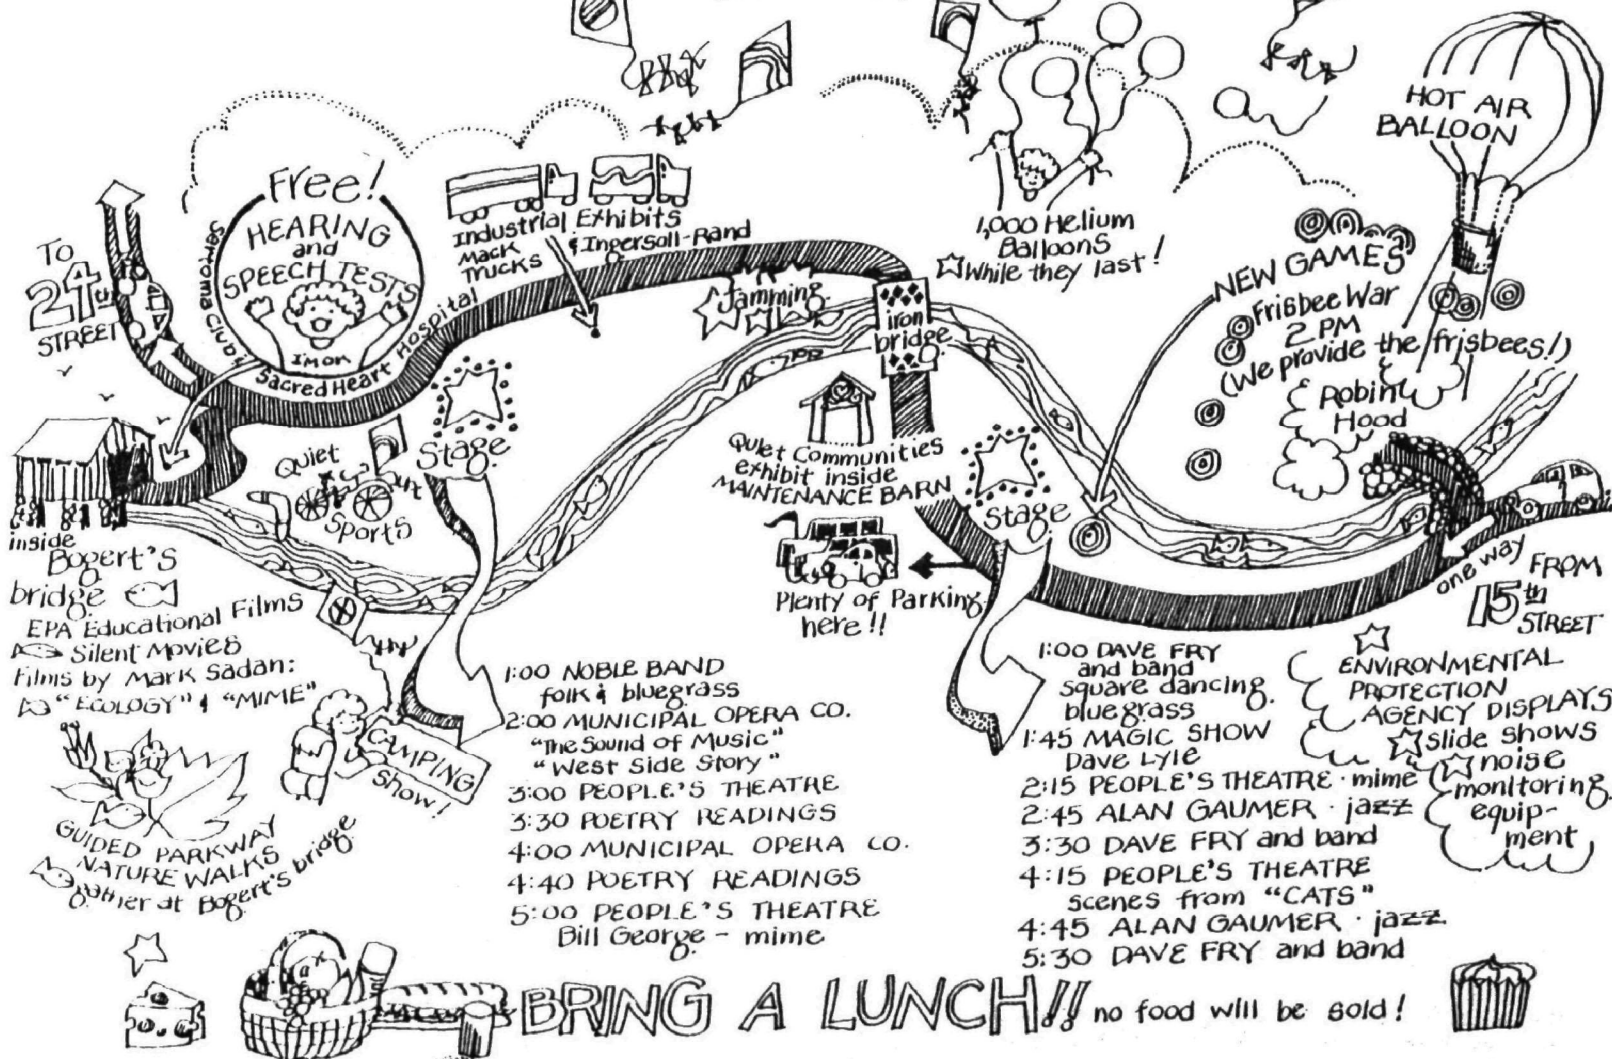 TO
24th
STREET
Free!
HEARING
and
SPEECH TESTS
I'M OK
Sacred Heart Hospital
Industrial Exhibits
Mack
Trucks
& Ingersoll-Rand
Jamming
iron
bridge
1,000 Helium
Balloons
While they last!
HOT AIR
BALLOON
NEW GAMES
Frisbee War
2 PM
(We provide the frisbees!)
Robin
Hood
Stage
Quiet
Sports
Quiet Communities
exhibit inside
MAINTENANCE BARN
Stage
Plenty of Parking
here!!
one way
FROM
15th
STREET
inside
Bogert's
bridge
EPA Educational Films
Silent Movies
Films by Mark Sadan:
"ECOLOGY" & "MIME"
GUIDED PARKWAY
NATURE WALKS
gather at Bogert's bridge
CAMPING
Show!
1:00 NOBLE BAND
folk & bluegrass
2:00 MUNICIPAL OPERA CO.
"The Sound of Music"
"West Side Story"
3:00 PEOPLE'S THEATRE
3:30 POETRY READINGS
4:00 MUNICIPAL OPERA CO.
4:40 POETRY READINGS
5:00 PEOPLE'S THEATRE
Bill George - mime
1:00 DAVE FRY
and band
square dancing
bluegrass
1:45 MAGIC SHOW
Dave Lyle
2:15 PEOPLE'S THEATRE · mime
2:45 ALAN GAUMER · jazz
3:30 DAVE FRY and band
4:15 PEOPLE'S THEATRE
scenes from "CATS"
4:45 ALAN GAUMER · jazz
5:30 DAVE FRY and band
ENVIRONMENTAL
PROTECTION
AGENCY DISPLAYS
slide shows
noise
monitoring
equip-
ment
BRING A LUNCH!! no food will be sold!